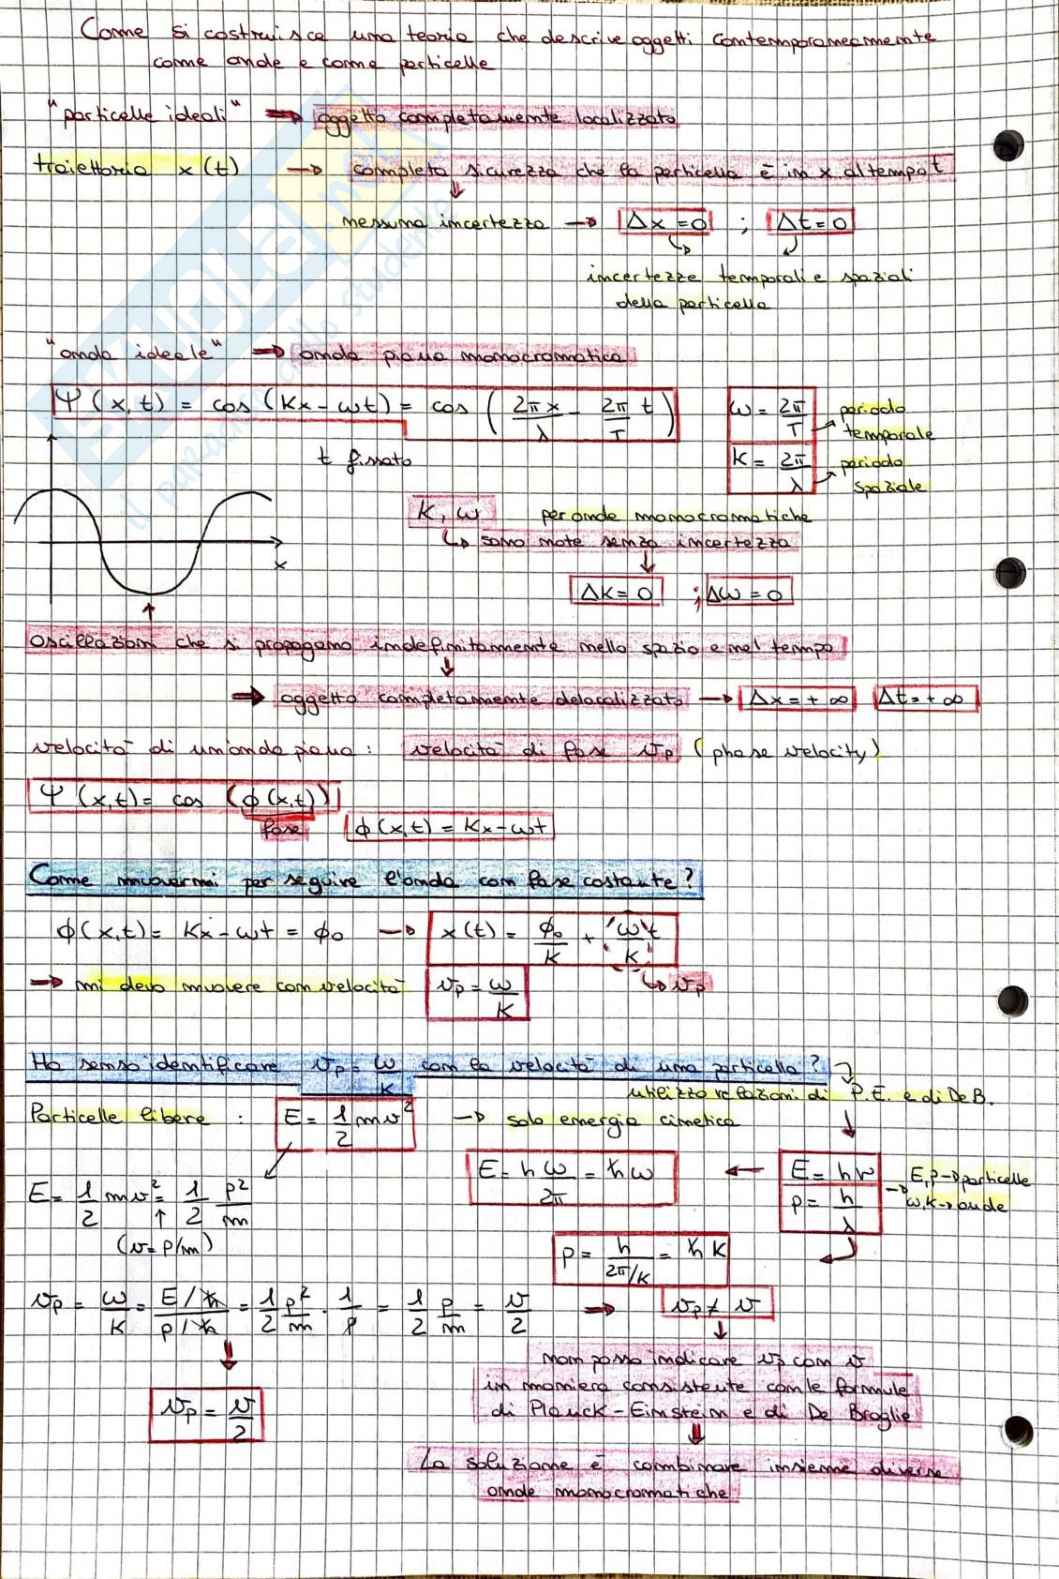 Come si costruisce una teoria che descrive oggetti contemporaneamente
come onde e come particelle
"particelle ideali" → oggetto completamente localizzato
traiettoria x(t) → completa sicurezza che la particella è in x al tempo t
↓
nessuna incertezza → Δx = 0 ; Δt = 0
incertezze temporali e spaziali
della particella
"onda ideale" → onda piana monocromatica
Ψ(x, t) = cos(Kx - ωt) = cos(2πx/λ - 2π/T t)
ω = 2π/T → periodo temporale
K = 2π/λ → periodo spaziale
t fissato
x
K, ω per onde monocromatiche
↳ sono note senza incertezza
↓
ΔK = 0 ; Δω = 0
oscillazioni che si propagano indefinitamente nello spazio e nel tempo
↓
→ oggetto completamente delocalizzato → Δx = + ∞ Δt = + ∞
velocità di un'onda piana : velocità di fase vp (phase velocity)
Ψ(x,t) = cos(ϕ(x,t))
fase ϕ(x,t) = Kx - ωt
Come muovermi per seguire l'onda con fase costante?
ϕ(x,t) = Kx - ωt = ϕ₀ → x(t) = ϕ₀/K + ω/K t
→ mi devo muovere con velocità vp = ω/K ↳ vp
Ha senso identificare vp = ω/K con la velocità di una particella?
utilizzo relazioni di P.E. e di De B.
Particelle libere : E = 1/2 mv² → solo energia cinetica
E = hω/2π = ħω ← E = hν
p = h/λ
→ E,p → particelle
ω,K → onde
E = 1/2 mv² = 1/2 p²/m
↑
(v = p/m)
p = h/2π/K = ħK
vp = ω/K = E/ħ / p/ħ = 1/2 p²/m · 1/p = 1/2 p/m = v/2 → vp ≠ v
↓
vp = v/2
non posso indicare vp con v
in maniera consistente con le formule
di Planck-Einstein e di De Broglie
↓
La soluzione è combinare insieme diverse
onde monocromatiche
SKUOLA.net
il paradiso dello studente